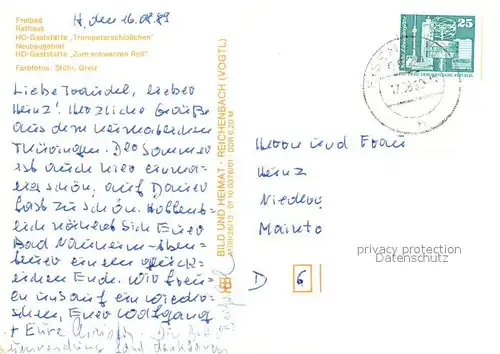 Freibad
Rathaus
HO-Gaststätte „Trompeterschlößchen"
Neubaugebiet
HO-Gaststätte „Zum schwarzen Roß"
Farbfotos: Stöhr, Greiz
H, den 16.08.89
Liebe Traudel, lieber
Heinz! Herzliche Grüße
aus dem
Thüringen. Der Sommer
ist auch hier einma-
lig schön, auf Dauer
fast zu schön. Hoffent-
lich nähert sich Euer
Bad Nauheim-Aben-
teuer einem glück-
lichen Ende. Wir freu-
en uns auf ein Wieder-
sehen, Euer Wolfgang
+ Eure
BILD UND HEIMAT · REICHENBACH (VOGTL)
DDR 0,20 M
25
Herrn und Frau
Heinz
Niedley
Mainto
privacy protection
Datenschutz
D 6